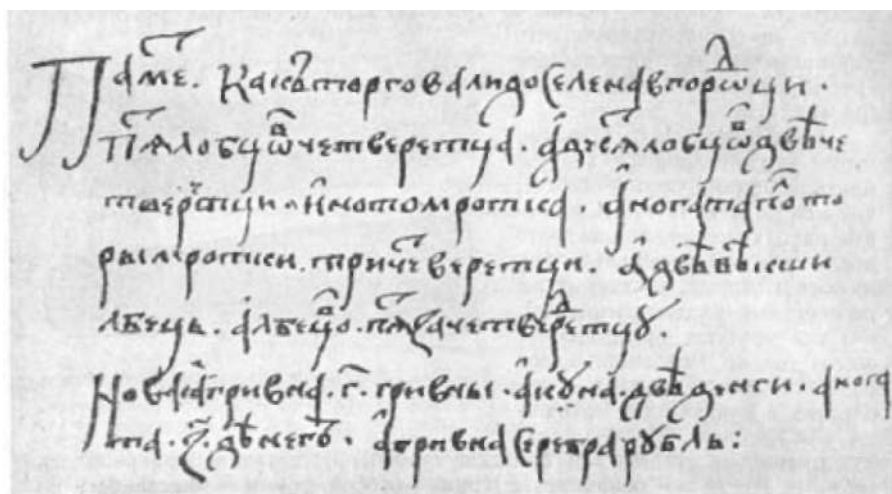 Памⷮе. Какъ торговали доселе навгорѡⷣци.
Пѧⷮ лобцѡⷡ четверетца. а десѧⷮ лобцѡⷡ двѣ че
тверⷮци. и на том ротиса. а ногата полто
ры ротиси. три чеⷮверетци. а двѣ вѣкши
лбець. а лбецоⷡ. пѧⷮ за четвереⷮцꙋ.
Новаа гривна. г҃. гривны. а куна двѣ денги. а нога
та. з҃. денегъ. а гривна серебра рꙋбль: